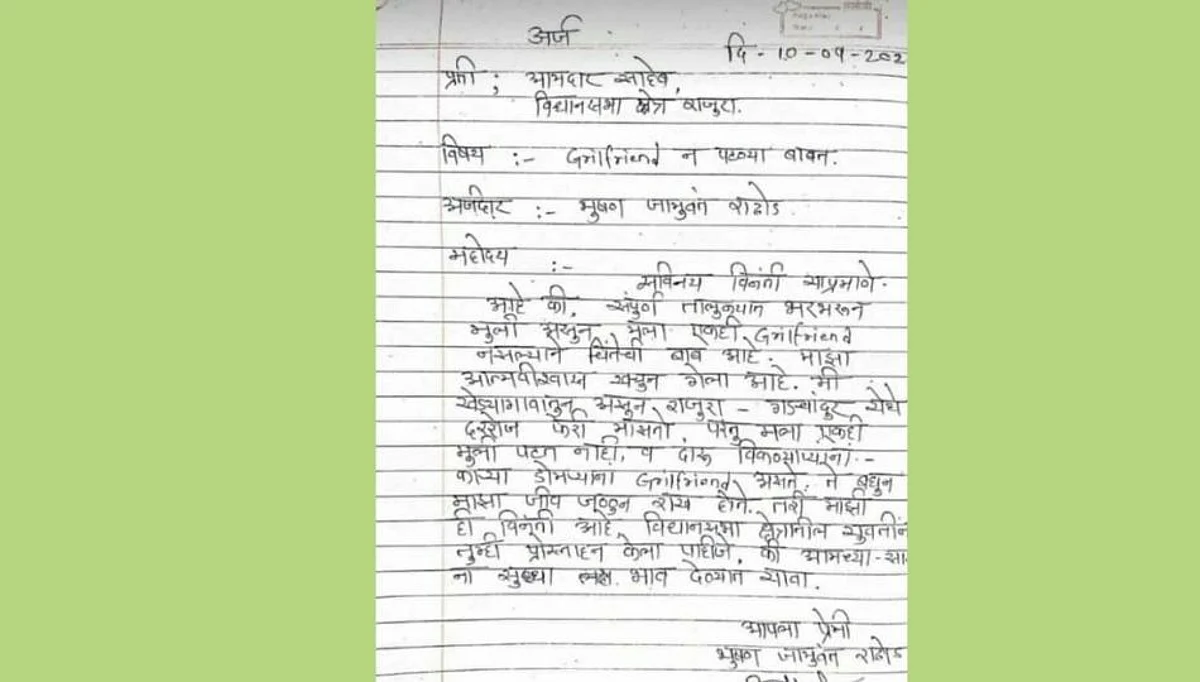 अर्ज
दि - 10-09-202
प्रती ; आमदार साहेब,
विधानसभा क्षेत्र राजुरा.
विषय :- Grilfriend न पटण्या बाबत.
अर्जदार :- भुषण जामुवंत राठोड
महोदय :-
सविनय विनंती याप्रमाणे.
आहे की, संपुर्ण तालुक्यात भरभरून
मुली असुन मला एकही Grilfriend
नसल्याने चिंतेची बाब आहे. माझा
आत्मवीश्वास खचुन गेला आहे. मी
खेड्यागावातुन असुन राजुरा - गडचांदुर येथे
दररोज फेरी मारतो, परंतु मला एकही
मुली पटत नाही, व दारू
काऱ्या डोमड्यांना Grilfriend असते. ते बघुन
माझा जीव जळुन राख होतो. तरी माझी
ही विनंती आहे, विधानसभा क्षेत्रातील युवतींन
तुम्ही प्रोत्साहन केला पाहीजे, की आमच्या-सा
ना सुध्दा भाव देण्यात यावा.
आपला प्रेमी
भुषण जामुवंत राठोड